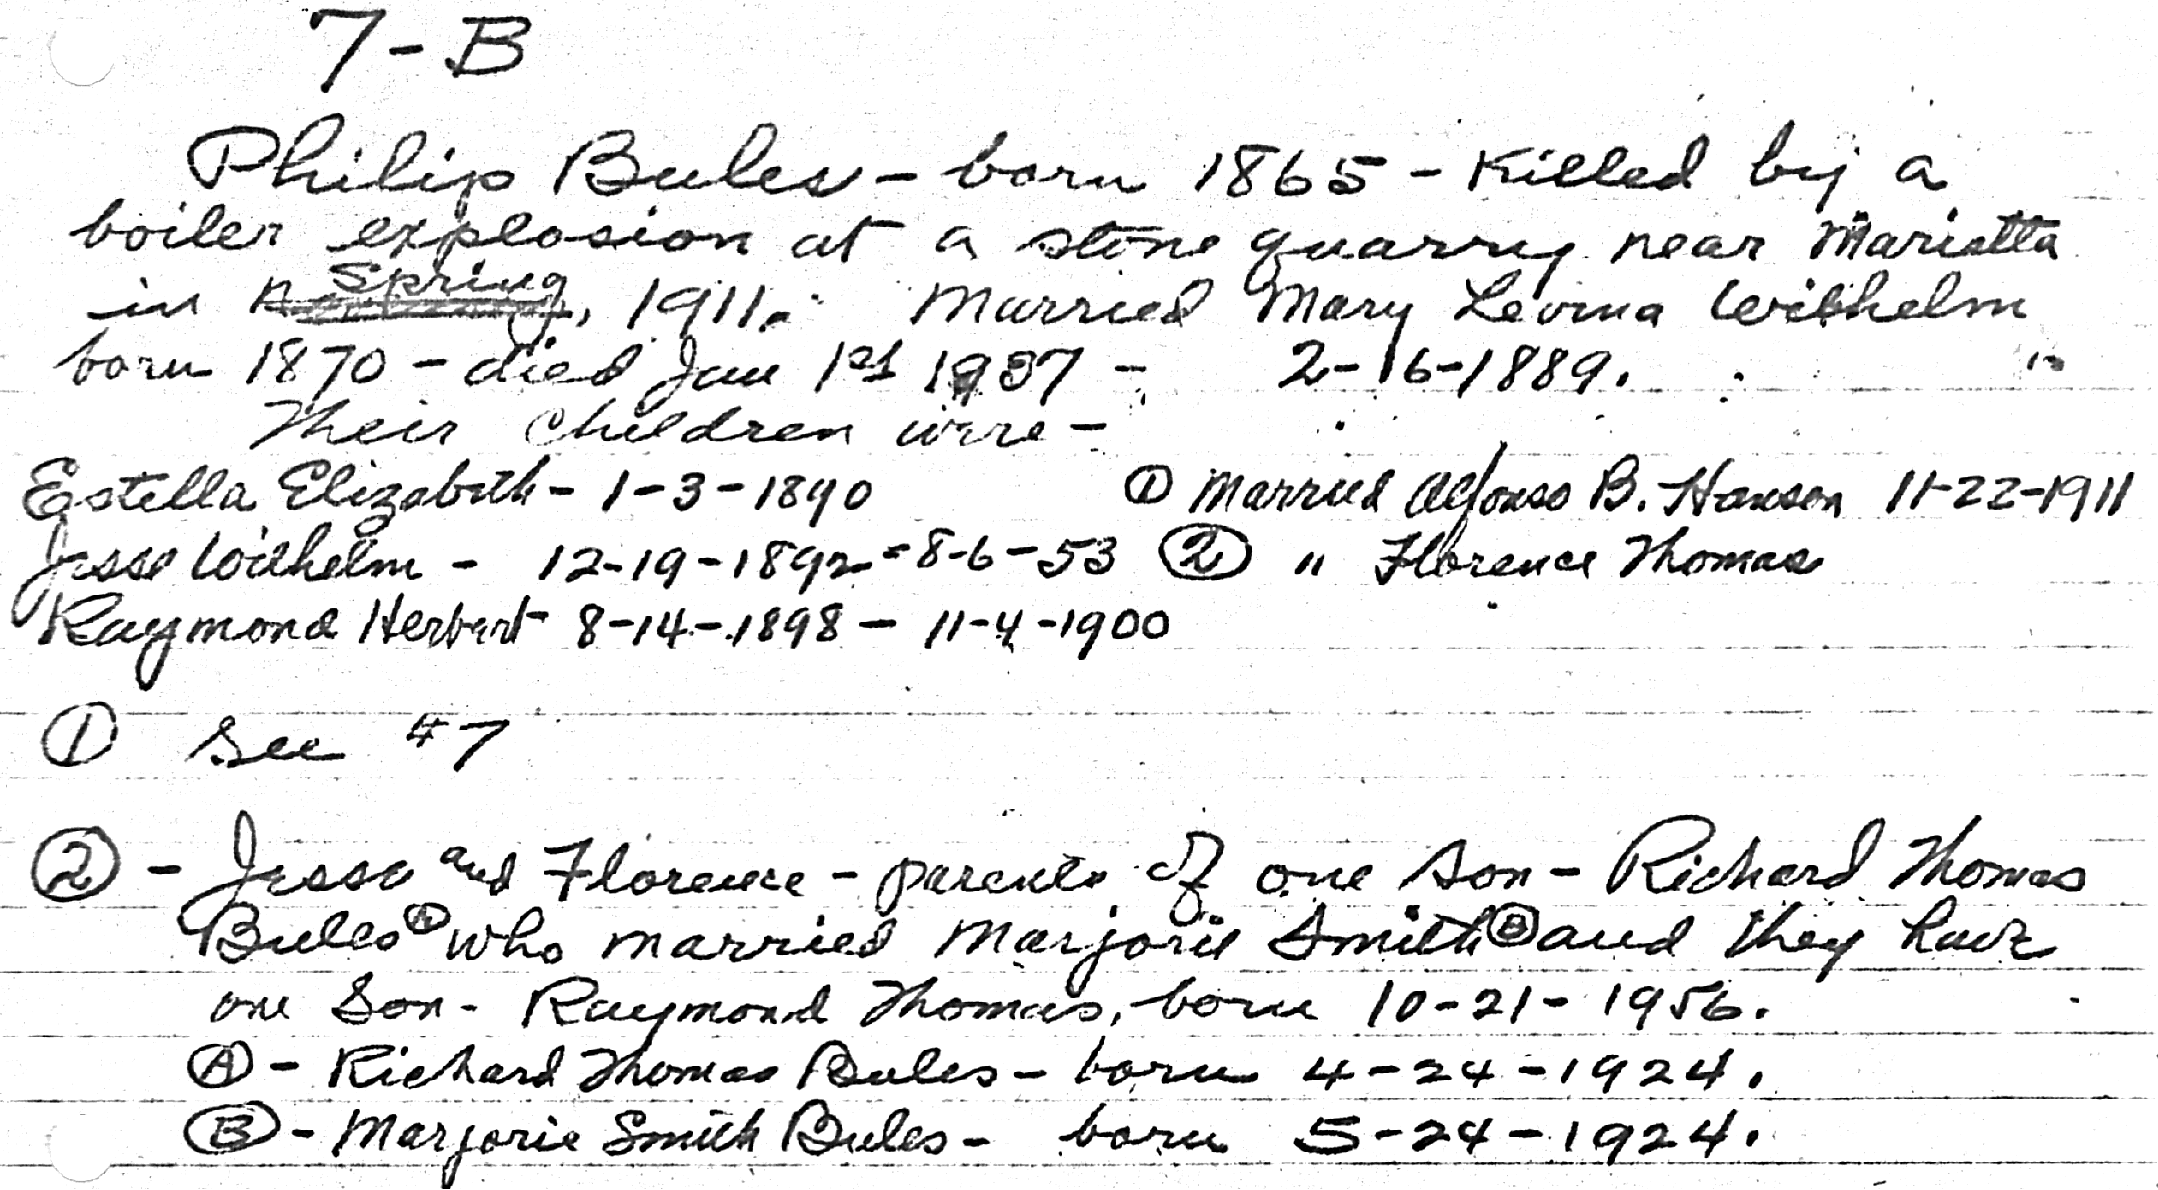 7-B
Philip Bules - born 1865 - Killed by a
boiler explosion at a stone quarry near Marietta
in Spring, 1911. Married Mary Levina Wilhelm
born 1870 - died Jan 1st 1937 - 2-16-1889.
Their children were -
Estella Elizabeth - 1-3-1890 ① Married Alfonso B. Hanson 11-22-1911
Jesse Wilhelm - 12-19-1892 - 8-6-53 ② " Florence Thomas
Raymond Herbert - 8-14-1898 - 11-4-1900
① See #7
② - Jesse and Florence - parents of one son - Richard Thomas
Bules Ⓐ who married Marjorie Smith Ⓑ and they have
one son - Raymond Thomas, born 10-21-1956.
Ⓐ - Richard Thomas Bules - born 4-24-1924.
Ⓑ - Marjorie Smith Bules - born 5-24-1924.